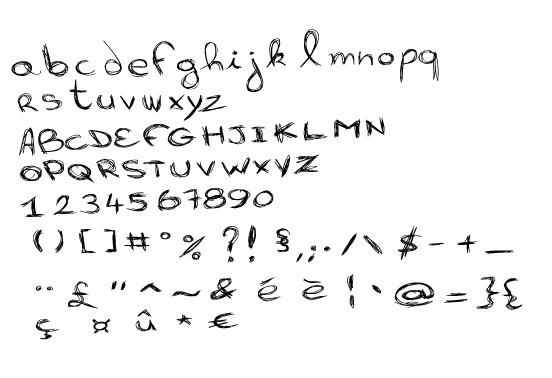 abcdefghijklmnopq
RSTUVWXYZ
ABCDEFGHIJKLMN
OPQRSTUVWXYZ
1234567890
()[]#°%?!§,;./\$-+_
¨£"^~&éè¦`@=}{
ç¤û*€